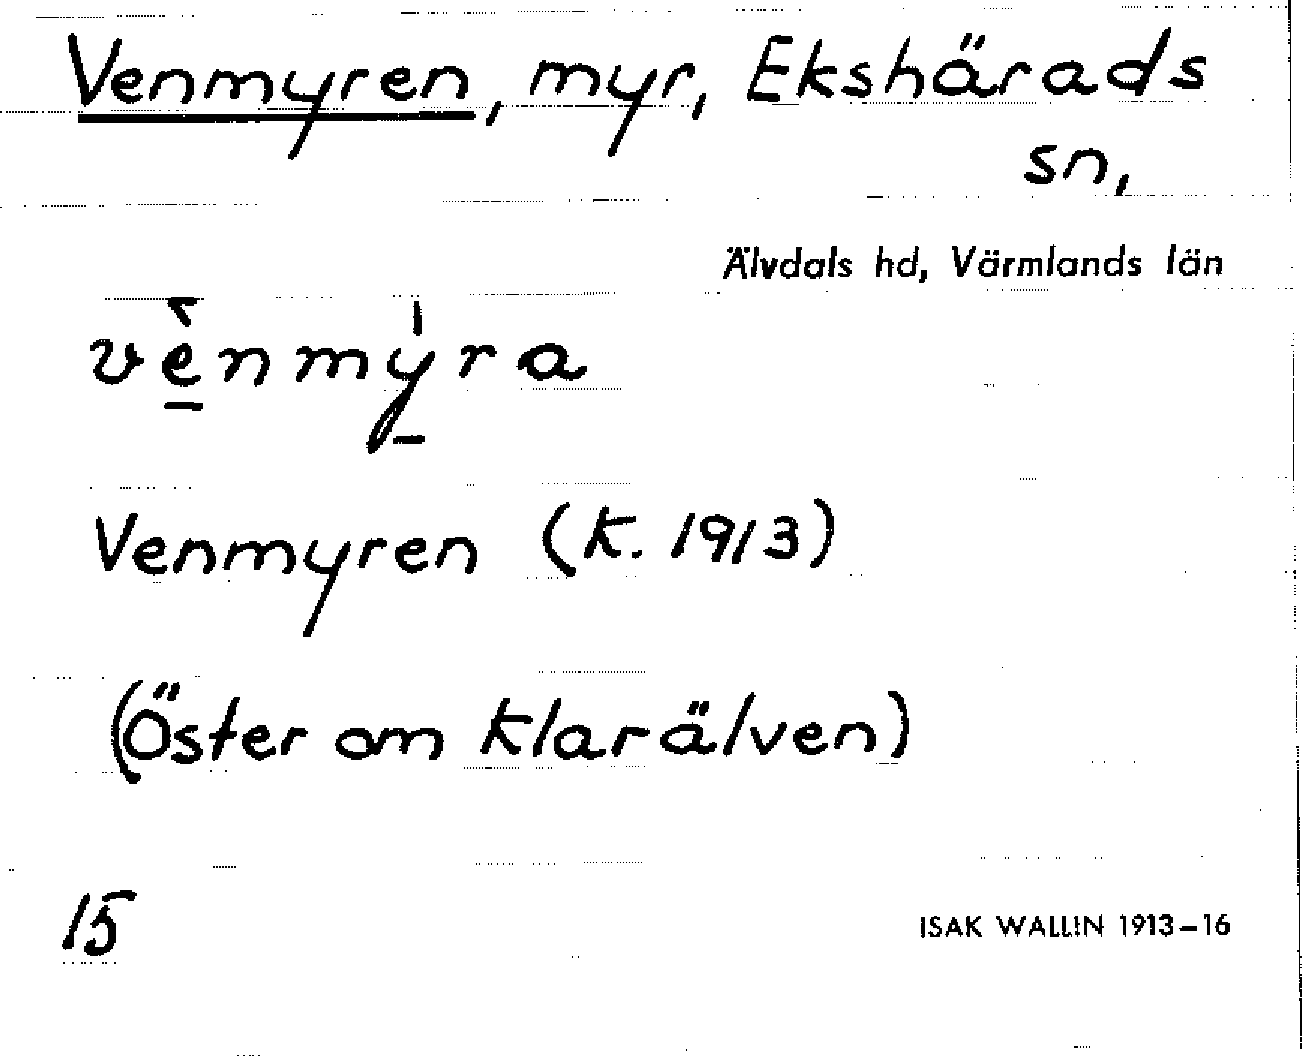 Venmyren, myr, Ekshärads
sn,
Älvdals hd, Värmlands län
vè̱nmý̱ra
Venmyren (K. 1913)
(Öster om Klarälven)
15
ISAK WALLIN 1913–16